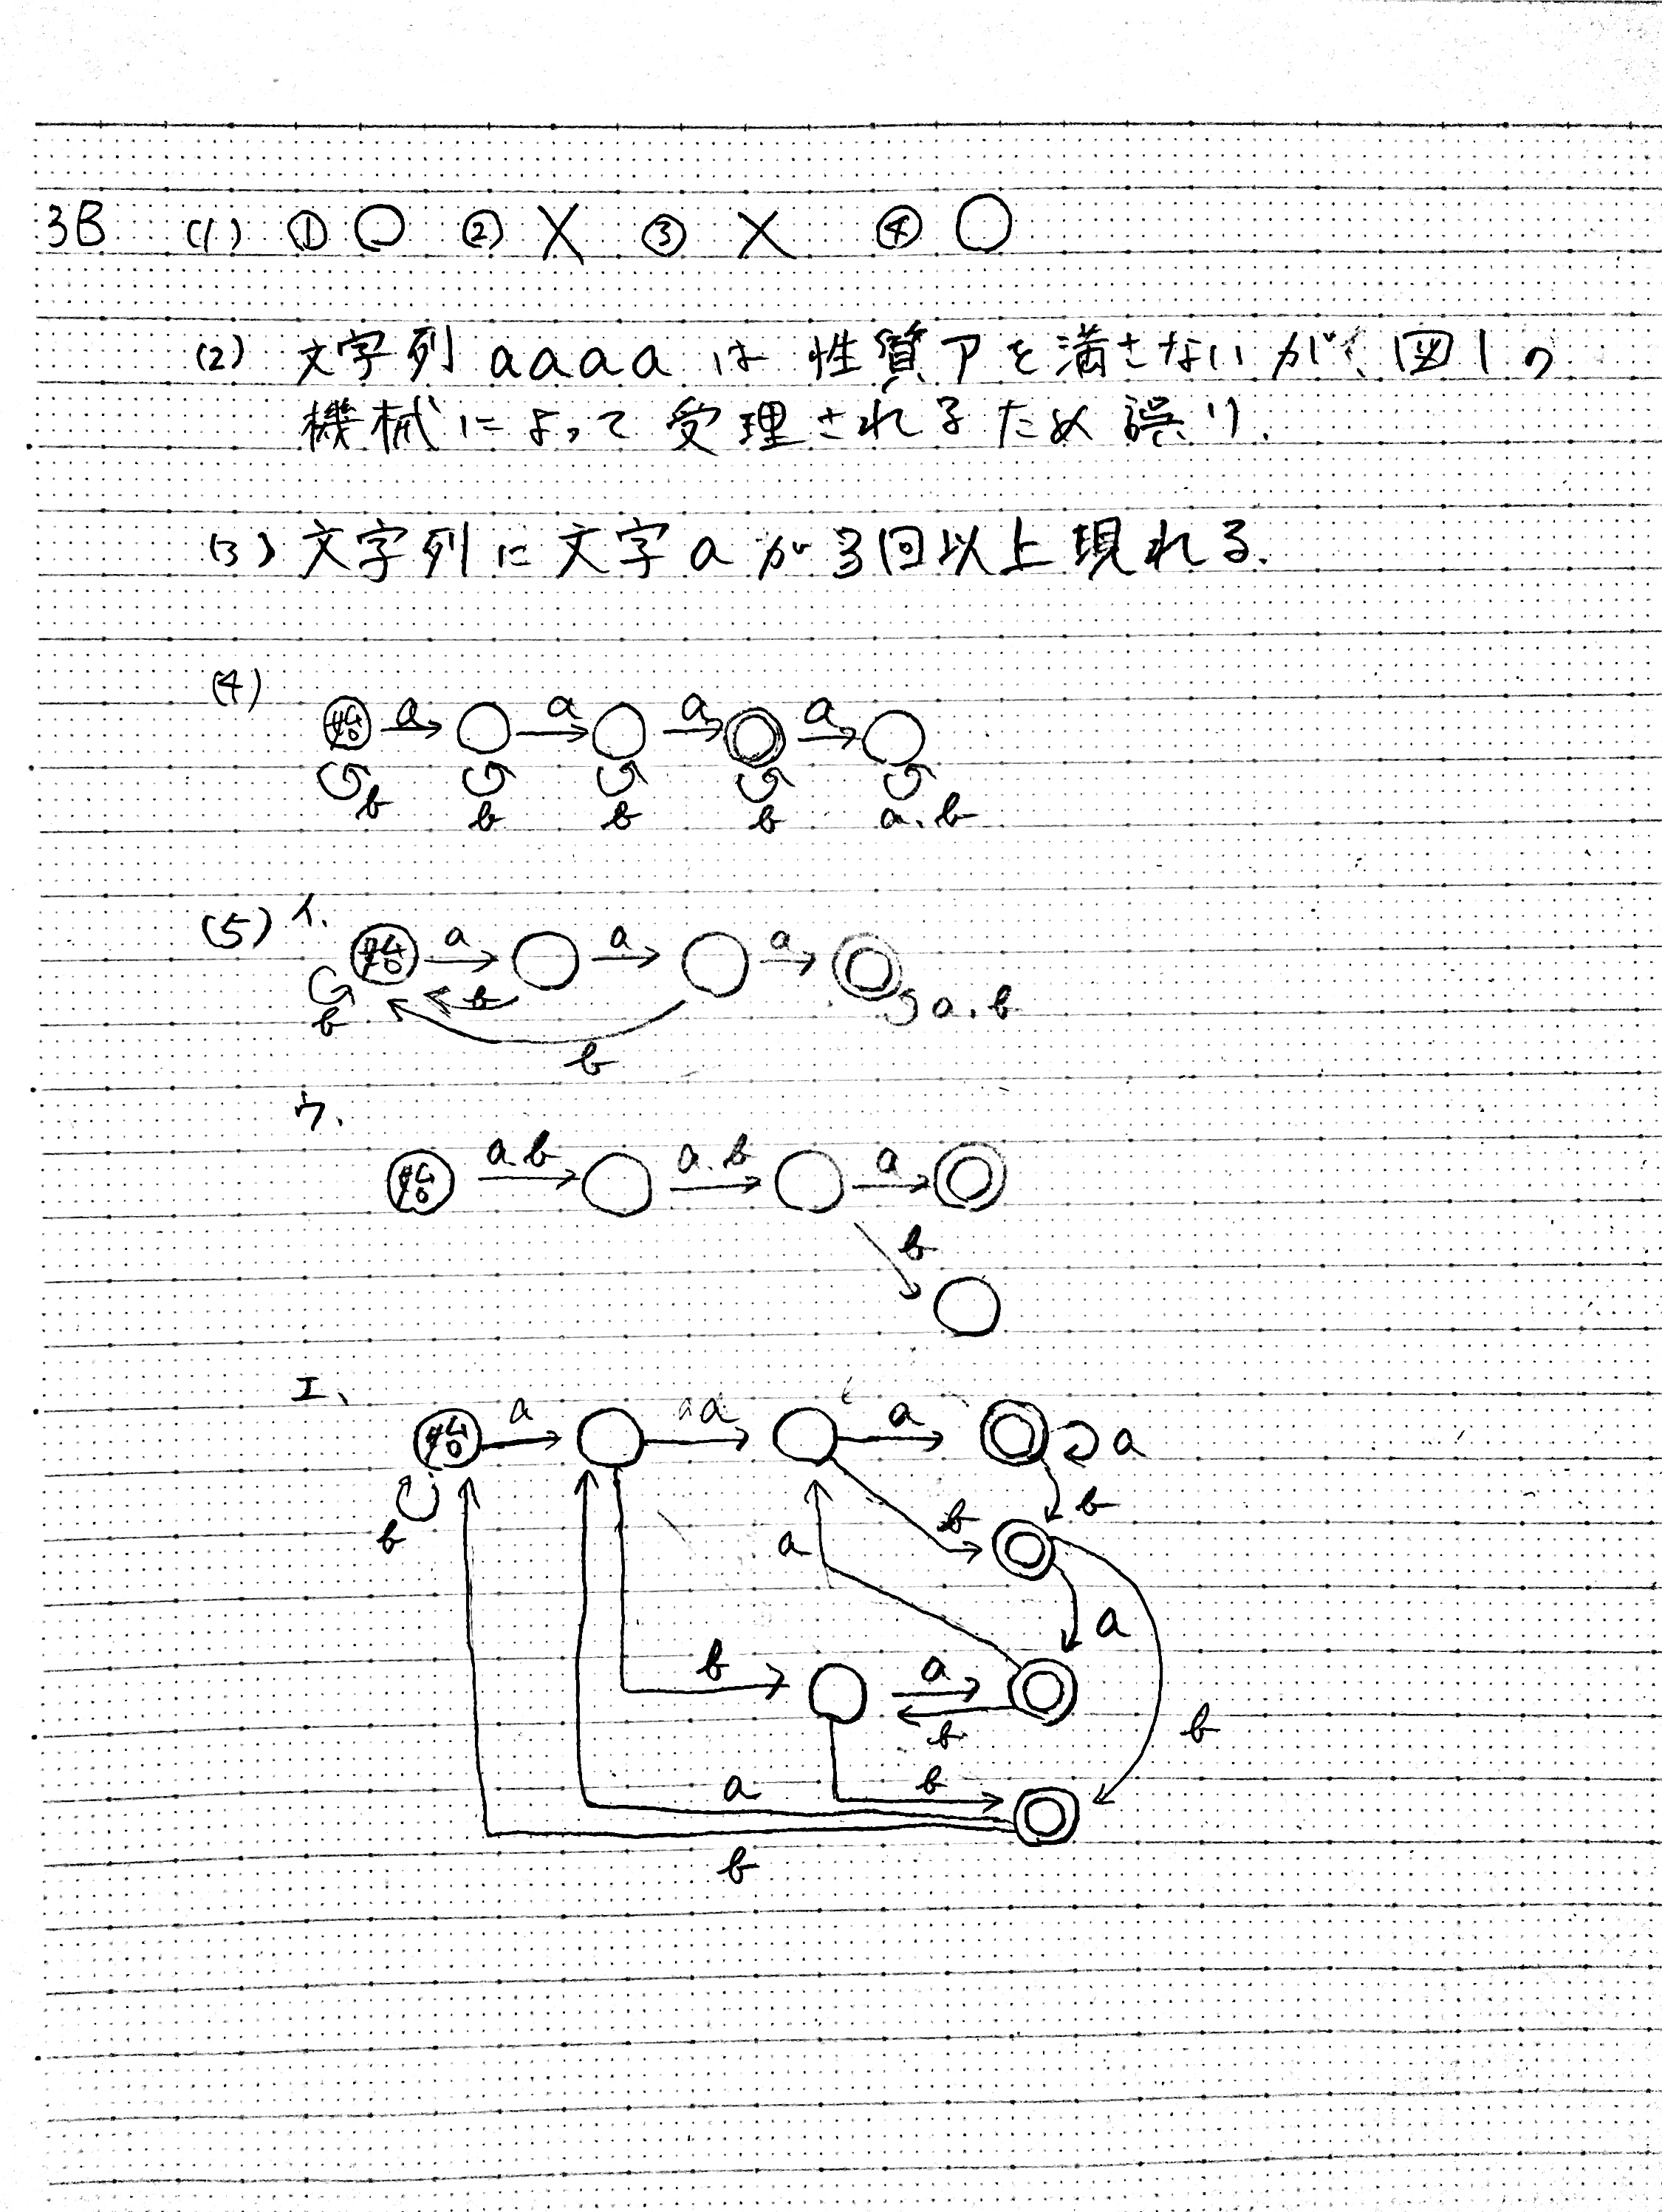 3B (1) ① ○ ② × ③ × ④ ○
(2) 文字列 aaaa は 性質アを満さないが、図1の
機械によって受理されるため誤り.
(3) 文字列に文字aが3回以上現れる.
(4)
始 a a a a
b b b b a.b
(5) イ.
始 a a a
b b a.b
b
ウ.
始 a.b a.b a
b
エ、
始 a a a a
b b b
a a
b a
b b
a b
b